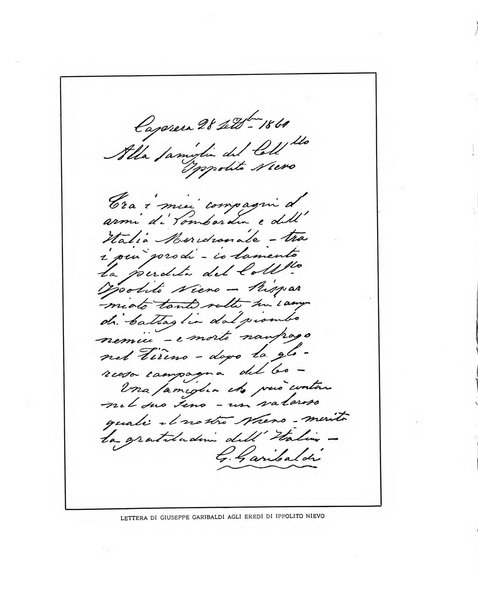 Caprera 28 Settbre 1861
Alla famiglia del Collllo
Ippolito Nievo
Tra i miei compagni d
armi di Lombardia e dell'
Italia Meridionale – tra
i più prodi – io lamento
la perdita del Collllo
Ippolito Nievo – Rispar
miato tante volte sui campi
di battaglia dal piombo
nemico – e morto naufrago
nel Tirreno – dopo la glo-
riosa campagna del 60 –
Una famiglia che può contar
nel suo seno – un valoroso
quale il nostro Nievo – merita
la gratitudine dell' Italia –
G. Garibaldi
LETTERA DI GIUSEPPE GARIBALDI AGLI EREDI DI IPPOLITO NIEVO